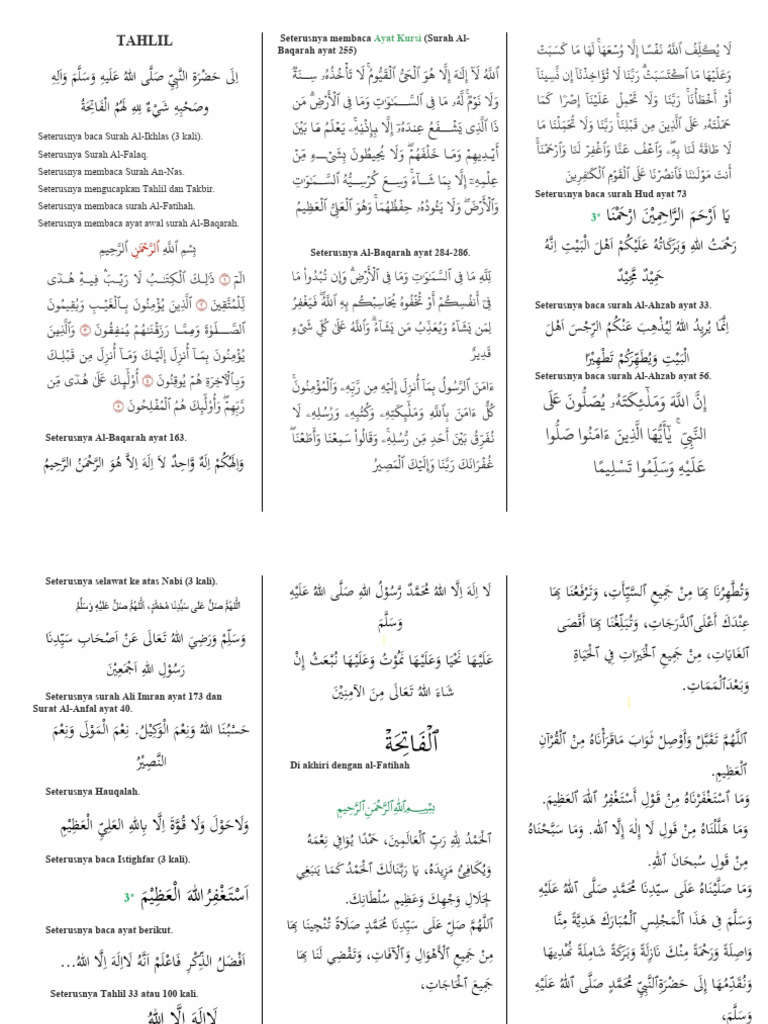 TAHLIL
اِلَى حَضْرَةِ النَّبِيِّ صَلَّى اللهُ عَلَيهِ وَسَلَّمَ وَاٰلِهِ
وصَحْبِهِ شَيْءٌ لِلهِ لَهُمُ الْفَاتِحَةُ
Seterusnya baca Surah Al-Ikhlas (3 kali).
Seterusnya Surah Al-Falaq.
Seterusnya membaca Surah An-Nas.
Seterusnya mengucapkan Tahlil dan Takbir.
Seterusnya membaca surah Al-Fatihah.
Seterusnya membaca ayat awal surah Al-Baqarah.
بِسْمِ اللَّهِ الرَّحْمَٰنِ الرَّحِيمِ
الٓمٓ ١ ذَٰلِكَ ٱلْكِتَٰبُ لَا رَيْبَ ۛ فِيهِ ۛ هُدًى
لِّلْمُتَّقِينَ ٢ ٱلَّذِينَ يُؤْمِنُونَ بِٱلْغَيْبِ وَيُقِيمُونَ
ٱلصَّلَوٰةَ وَمِمَّا رَزَقْنَٰهُمْ يُنفِقُونَ ٣ وَٱلَّذِينَ
يُؤْمِنُونَ بِمَآ أُنزِلَ إِلَيْكَ وَمَآ أُنزِلَ مِن قَبْلِكَ
وَبِٱلْءَاخِرَةِ هُمْ يُوقِنُونَ ٤ أُو۟لَٰٓئِكَ عَلَىٰ هُدًى مِّن
رَّبِّهِمْ ۖ وَأُو۟لَٰٓئِكَ هُمُ ٱلْمُفْلِحُونَ ٥
Seterusnya Al-Baqarah ayat 163.
وَاِلٰهُكُمْ اِلَهٌ وَّاحِدٌ لاَ اِلَهَ اِلاَّ هُوَ الرَّحْمٰنُ الرَّحِيمُ
Seterusnya membaca Ayat Kursi (Surah Al-
Baqarah ayat 255)
ٱللَّهُ لَآ إِلَٰهَ إِلَّا هُوَ ٱلْحَىُّ ٱلْقَيُّومُ ۚ لَا تَأْخُذُهُۥ سِنَةٌ
وَلَا نَوْمٌ ۚ لَّهُۥ مَا فِى ٱلسَّمَٰوَٰتِ وَمَا فِى ٱلْأَرْضِ ۗ مَن
ذَا ٱلَّذِى يَشْفَعُ عِندَهُۥٓ إِلَّا بِإِذْنِهِۦ ۚ يَعْلَمُ مَا بَيْنَ
أَيْدِيهِمْ وَمَا خَلْفَهُمْ ۖ وَلَا يُحِيطُونَ بِشَىْءٍ مِّنْ
عِلْمِهِۦٓ إِلَّا بِمَا شَآءَ ۚ وَسِعَ كُرْسِيُّهُ ٱلسَّمَٰوَٰتِ
وَٱلْأَرْضَ ۖ وَلَا يَـُٔودُهُۥ حِفْظُهُمَا ۚ وَهُوَ ٱلْعَلِىُّ ٱلْعَظِيمُ
Seterusnya Al-Baqarah ayat 284-286.
لِّلَّهِ مَا فِى ٱلسَّمَٰوَٰتِ وَمَا فِى ٱلْأَرْضِ ۗ وَإِن تُبْدُوا۟ مَا
فِىٓ أَنفُسِكُمْ أَوْ تُخْفُوهُ يُحَاسِبْكُم بِهِ ٱللَّهُ ۖ فَيَغْفِرُ
لِمَن يَشَآءُ وَيُعَذِّبُ مَن يَشَآءُ ۗ وَٱللَّهُ عَلَىٰ كُلِّ شَىْءٍ
قَدِيرٌ
ءَامَنَ ٱلرَّسُولُ بِمَآ أُنزِلَ إِلَيْهِ مِن رَّبِّهِۦ وَٱلْمُؤْمِنُونَ ۚ
كُلٌّ ءَامَنَ بِٱللَّهِ وَمَلَٰٓئِكَتِهِۦ وَكُتُبِهِۦ وَرُسُلِهِۦ لَا
نُفَرِّقُ بَيْنَ أَحَدٍ مِّن رُّسُلِهِۦ ۚ وَقَالُوا۟ سَمِعْنَا وَأَطَعْنَا ۖ
غُفْرَانَكَ رَبَّنَا وَإِلَيْكَ ٱلْمَصِيرُ
لَا يُكَلِّفُ ٱللَّهُ نَفْسًا إِلَّا وُسْعَهَا ۚ لَهَا مَا كَسَبَتْ
وَعَلَيْهَا مَا ٱكْتَسَبَتْ ۗ رَبَّنَا لَا تُؤَاخِذْنَآ إِن نَّسِينَآ
أَوْ أَخْطَأْنَا ۚ رَبَّنَا وَلَا تَحْمِلْ عَلَيْنَآ إِصْرًا كَمَا
حَمَلْتَهُۥ عَلَى ٱلَّذِينَ مِن قَبْلِنَا ۚ رَبَّنَا وَلَا تُحَمِّلْنَا مَا
لَا طَاقَةَ لَنَا بِهِۦ ۖ وَٱعْفُ عَنَّا وَٱغْفِرْ لَنَا وَٱرْحَمْنَآ ۚ
أَنتَ مَوْلَىٰنَا فَٱنصُرْنَا عَلَى ٱلْقَوْمِ ٱلْكَٰفِرِينَ
Seterusnya baca surah Hud ayat 73
يَا اَرْحَمَ الرَّاحِمِيْنَ ارْحَمْنَا 3*
رَحْمَتُ اللهِ وَبَرَكَاتُهُ عَلَيْكُمْ اَهْلَ الْبَيْتِ اِنَّهُ
حَمِيْدٌ مَّجِيْدٌ
Seterusnya baca surah Al-Ahzab ayat 33.
اِنَّمَا يُرِيْدُ اللهُ لِيُذْهِبَ عَنْكُمُ الرِّجْسَ اَهْلَ
الْبَيْتِ وَيُطَهِّرَكُمْ تَطْهِيْرًا
Seterusnya baca surah Al-Ahzab ayat 56.
إِنَّ اللَّهَ وَمَلَٰٓئِكَتَهُۥ يُصَلُّونَ عَلَى
النَّبِيِّ ۚ يَٰٓأَيُّهَا الَّذِينَ ءَامَنُوا صَلُّوا
عَلَيْهِ وَسَلِّمُوا تَسْلِيمًا
Seterusnya selawat ke atas Nabi (3 kali).
اَللّٰهُمَّ صَلِّ عَلَى سَيِّدِنَا مُحَمَّدٍ، اَللّٰهُمَّ صَلِّ عَلَيْهِ وَسَلِّمْ
وَسَلِّمْ وَرَضِيَ اللهُ تَعَالَى عَنْ اَصْحَابِ سَيِّدِنَا
رَسُوْلِ اللهِ اَجْمَعِيْنَ
Seterusnya surah Ali Imran ayat 173 dan
Surat Al-Anfal ayat 40.
حَسْبُنَا اللهُ وَنِعْمَ الْوَكِيْلُ. نِعْمَ الْمَوْلَى وَنِعْمَ
النَّصِيْرُ
Seterusnya Hauqalah.
وَلَاحَوْلَ وَلَا قُوَّةَ اِلَّا بِاللهِ العَلِيِّ الْعَظِيْمِ
Seterusnya baca Istighfar (3 kali).
اَسْتَغْفِرُ اللهَ الْعَظِيْمَ 3*
Seterusnya baca ayat berikut.
اَفْضَلُ الذِّكْرِ فَاعْلَمْ اَنَّهُ لَااِلهَ اِلَّا اللهُ...
Seterusnya Tahlil 33 atau 100 kali.
لَااِلَهَ اِلَّا اللهُ
لَا اِلَهَ اِلَّا اللهُ مُحَمَّدٌ رَّسُوْلُ اللهِ صَلَّى اللهُ عَلَيْهِ
وَسَلَّمَ
عَلَيْهَا نَحْيَا وَعَلَيْهَا نَمُوْتُ وَعَلَيْهَا نُبْعَثُ إِنْ
شَاءَ اللهُ تَعَالَى مِنَ الآمِنِيْنَ
اَلْفَاتِحَةْ
Di akhiri dengan al-Fatihah
بِسْمِ اللهِ الرَّحْمٰنِ الرَّحِيْمِ
اَلْحَمْدُ لِلهِ رَبِّ الْعَالَمِينَ، حَمْدًا يُوَافِي نِعَمَهُ
وَيُكَافِئُ مَزِيدَهُ، يَا رَبَّنَالَكَ الْحَمْدُ كَمَا يَنبَغِي
لِجَلَالِ وَجْهِكَ وَعَظِيمِ سُلْطَانِكَ.
اَللَّهُمَّ صَلِّ عَلَى سَيِّدِنَا مُحَمَّدٍ صَلَاةً تُنْجِينَا بِهَا
مِنْ جَمِيعِ الْأَهْوَالِ وَالْآفَاتِ، وَتَقْضِي لَنَا بِهَا
جَمِيعَ الْحَاجَاتِ،
وَتُطَهِّرُنَا بِهَا مِنْ جَمِيعِ السَّيِّئَاتِ، وَتَرْفَعُنَا بِهَا
عِنْدَكَ أَعْلَى الدَّرَجَاتِ، وَتُبَلِّغُنَا بِهَا أَقْصَى
الغَايَاتِ، مِنْ جَمِيعِ الْخَيْرَاتِ فِي الْحَيَاةِ
وَبَعْدَالْمَمَاتِ.
اَللَّهُمَّ تَقَبَّلْ وَأَوْصِلْ ثَوَابَ مَاقَرَأْنَاهُ مِنْ الْقُرْآنِ
الْعَظِيمِ.
وَمَا اسْتَغْفَرْنَاهُ مِنْ قَوْلِ أَسْتَغْفِرُ اللهَ العَظِيمَ.
وَمَا هَلَّلْنَاهُ مِنْ قَوْلِ لَا إِلَهَ إِلَّا الله. وَمَا سَبَّحْنَاهُ
مِنْ قَولِ سُبحَانَ اللهِ.
وَمَا صَلَّيْنَاهُ عَلَى سَيِّدِنَا مُحَمَّدٍ صَلَّى اللهُ عَلَيْهِ
وَسَلَّمَ فِي هَذَا الْمَجْلِسِ الْمُبَارَكِ هَدِيَّةً مِنَّا
وَاصِلَةً وَرَحْمَةً مِنْكَ نَازِلَةً وَبَرَكَةً شَامِلَةً نُهْدِيهَا
وَنُقَدِّمُهَا إِلَى حَضْرَةِالنَّبِيِّ مُحَمَّدٍ صَلَّى اللهُ عَلَيْهِ
وَسَلَّمَ،